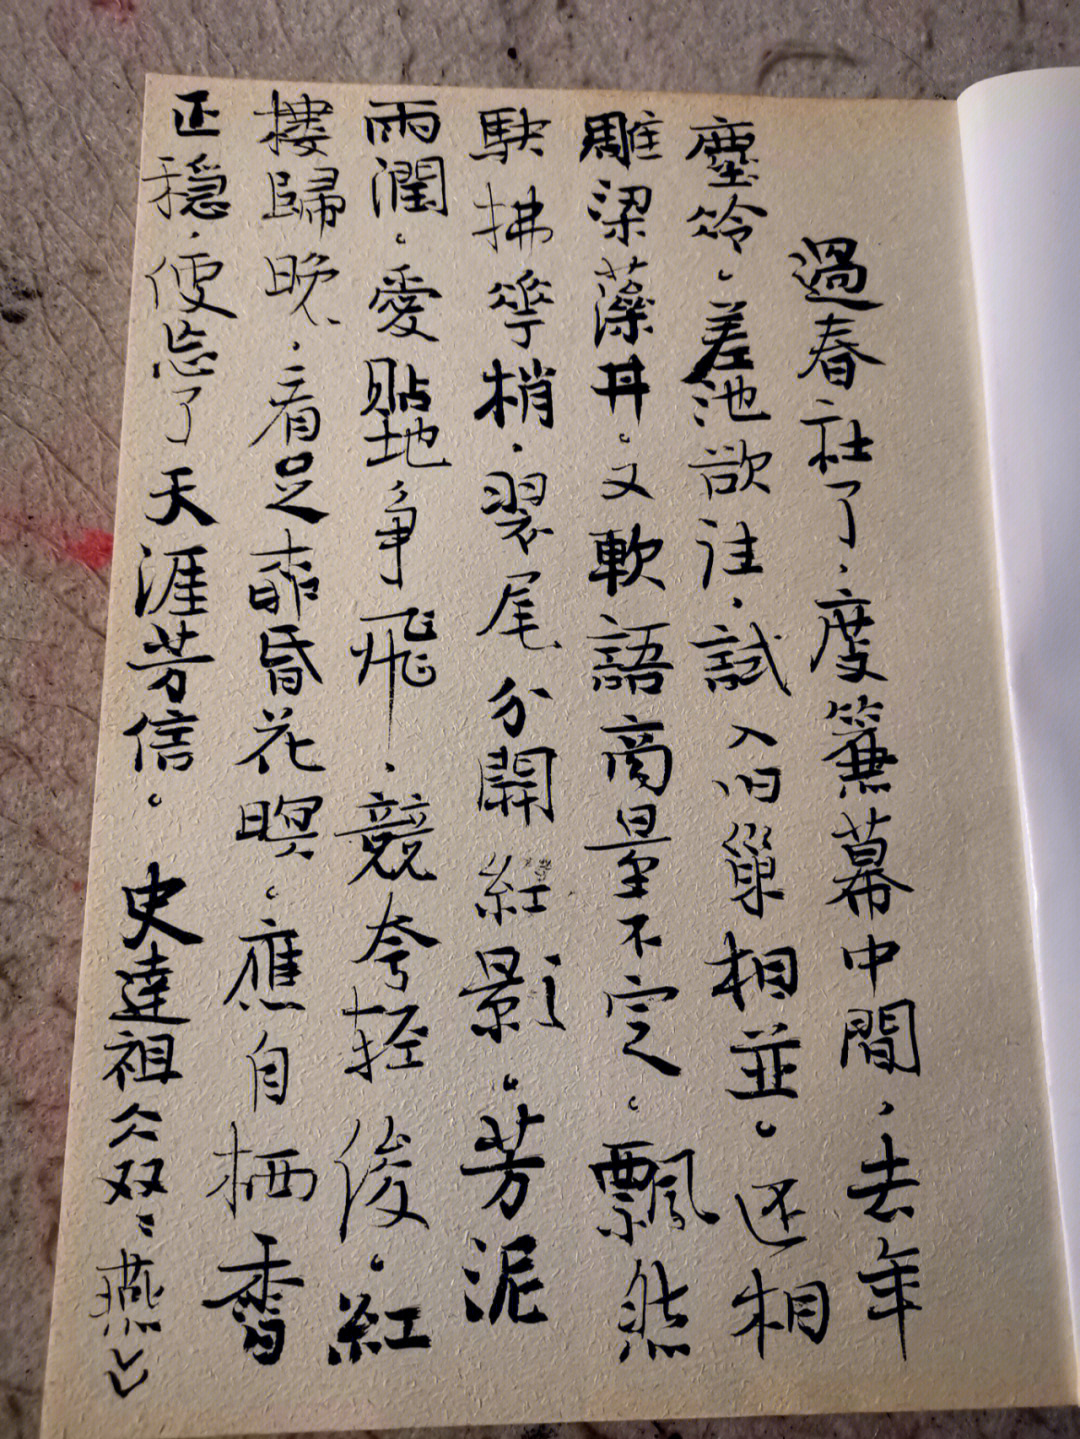 過春社了，度簾幕中間，去年
塵冷。差池欲往，試入旧巢相並。还相
雕梁藻井。又軟語商量不定。飄然
駃拂花梢，翠尾分開紅影。芳泥
雨潤。愛貼地争飛，競夸轻俊。紅
楼歸晚，看足栁昏花暝。應自栖香
正穏，便忘了天涯芳信。 史達祖《双双燕》